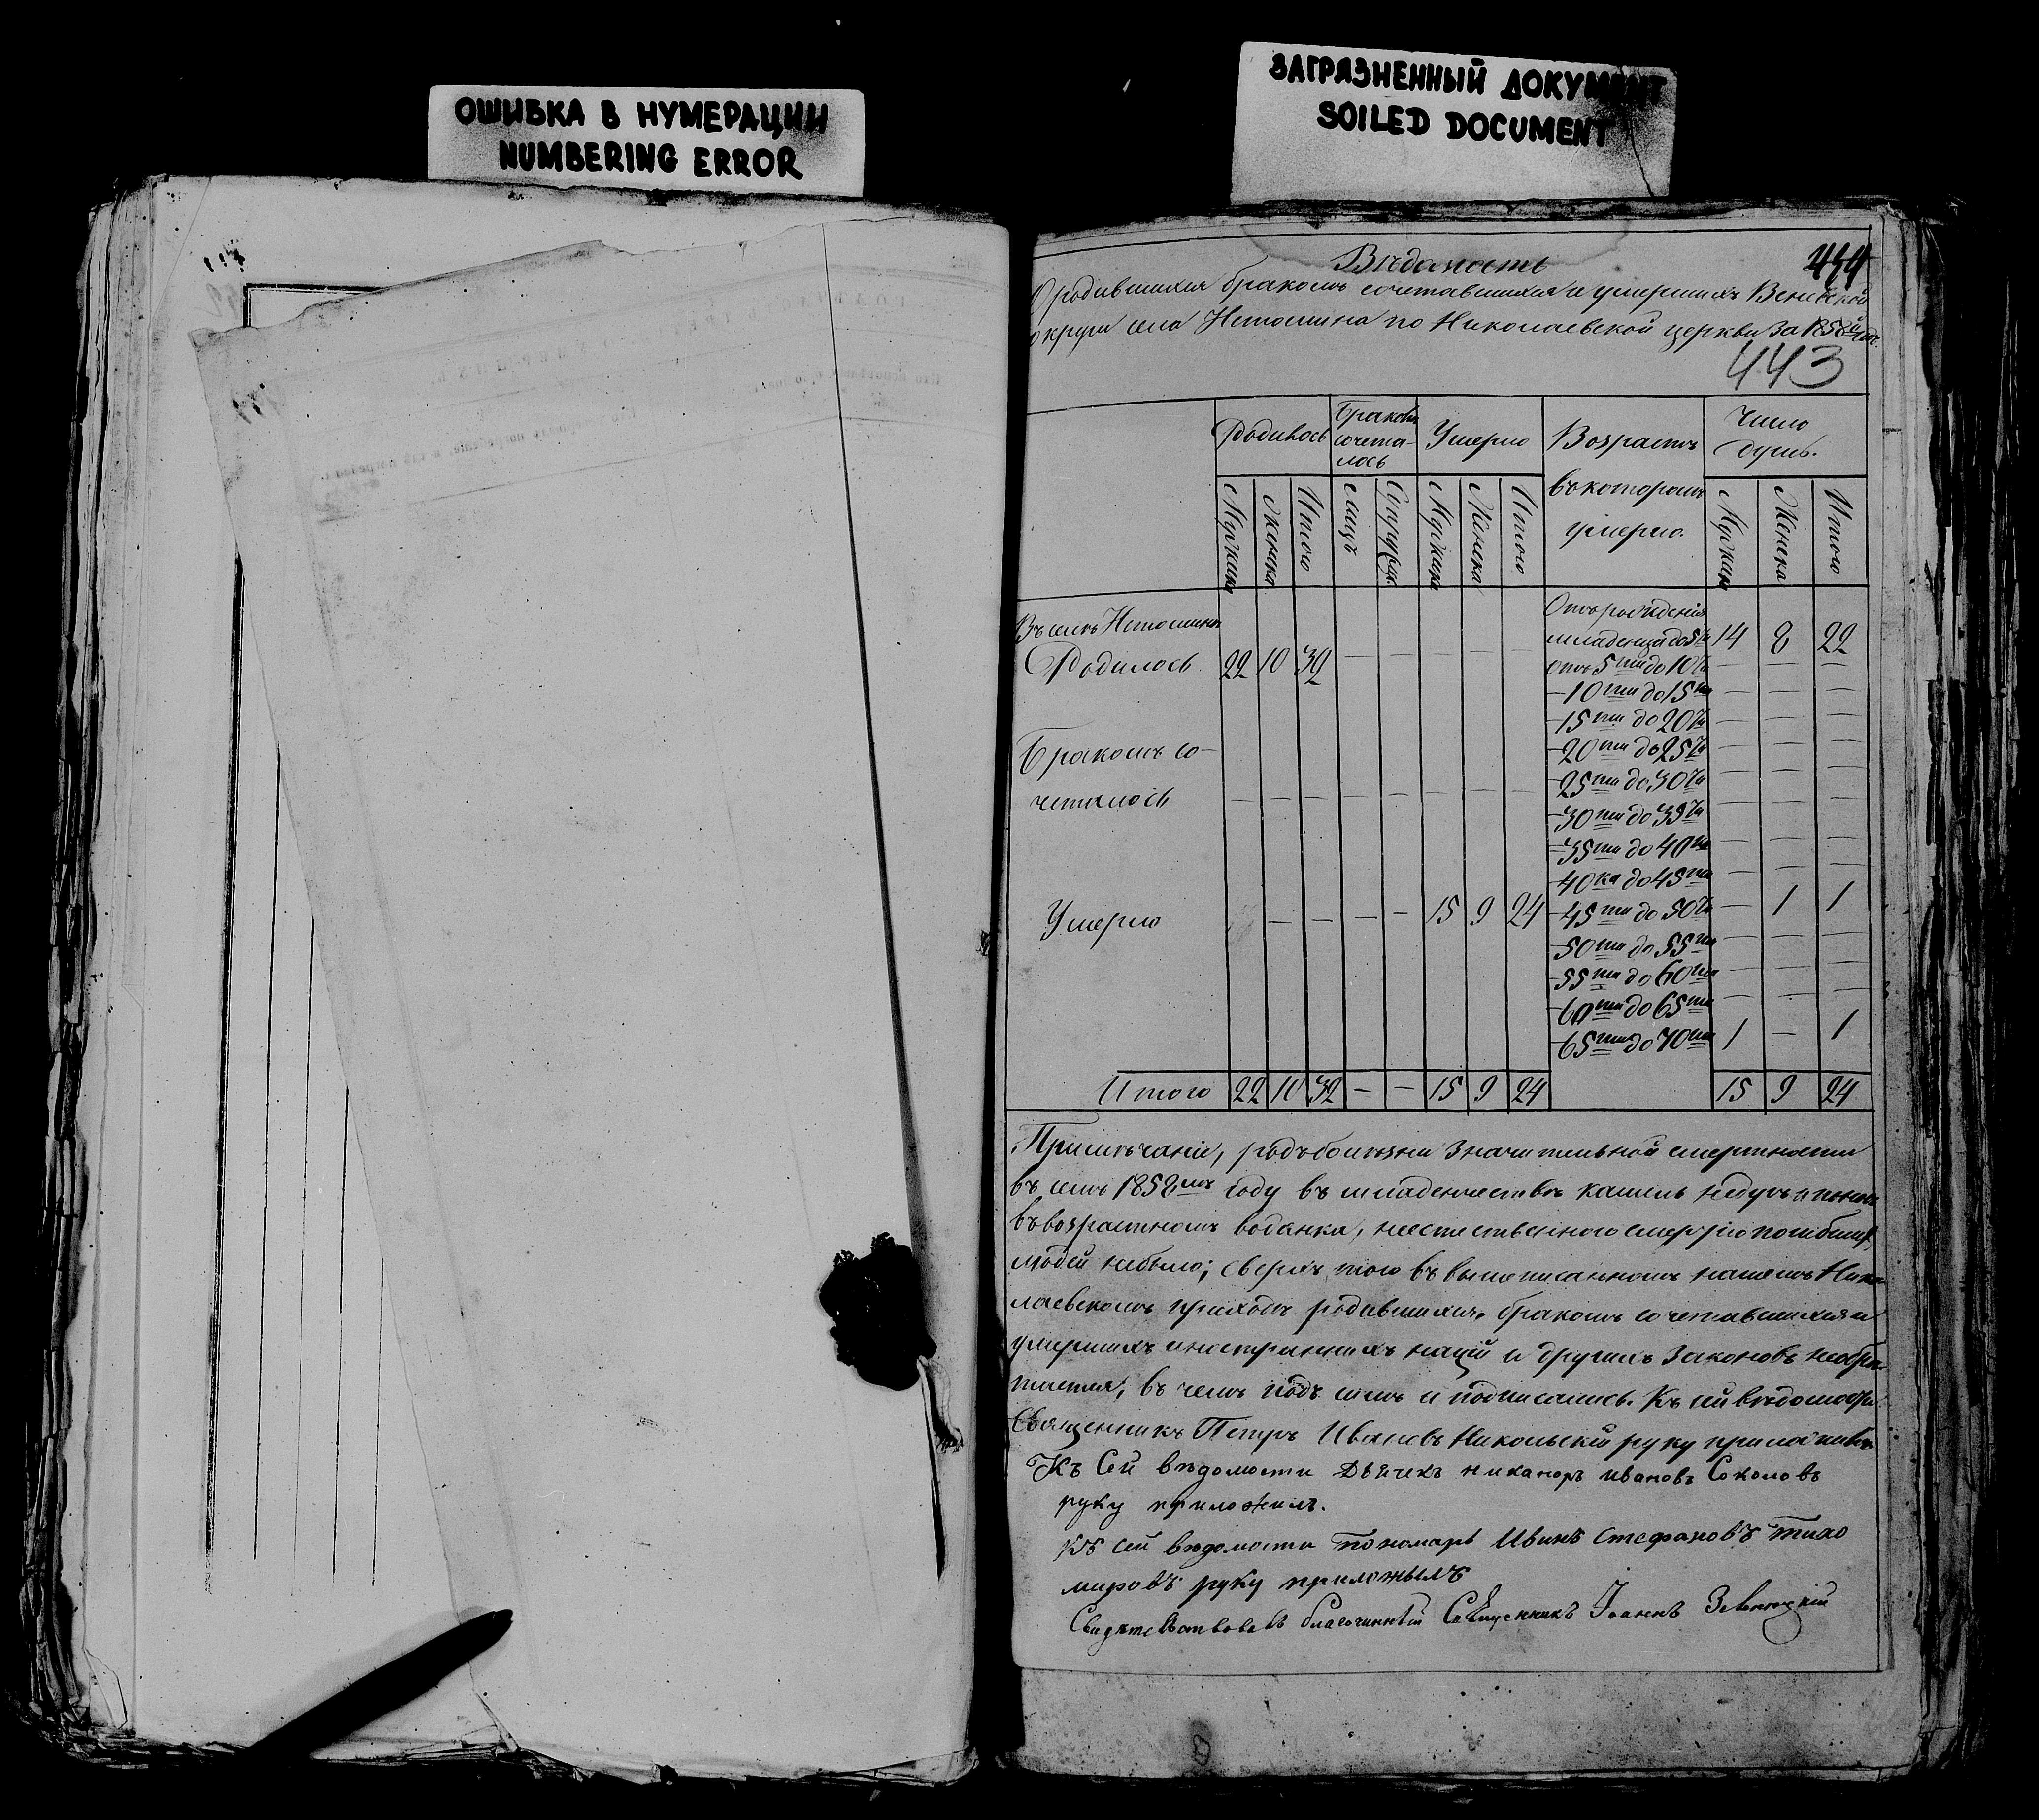 ОШИБКА В НУМЕРАЦИИ
NUMBERING ERROR
ЗАГРЯЗНЕННЫЙ ДОКУМЕНТ
SOILED DOCUMENT
Вѣдомость
О родившихся бракомъ сочетавшихся и умершихъ Веневской
округи села Истомина по Николаевской церкви за 1858й годъ.
443
Родилось
Бракомъ
сочета-
лось
Умерло
Возрастъ
въ которомъ
умерло.
Число
душъ.
Мужска Женска Итого Лицъ Мужска Женска Итого Мужска Женска Итого
Въ селѣ Истоминѣ
Родилось 22 10 32 — — — — —
Бракомъ со-
четалось — — — — — — — —
Умерло — — — — 15 9 24
Отъ рожденія
младенца до 5ти 14 8 22
Отъ 5ти до 10ти — — —
— 10ти до 15ти — — —
— 15ти до 20ти — — —
— 20ти до 25ти — — —
— 25ти до 30ти — — —
— 30ти до 35ти — — —
— 35ти до 40ка — — —
— 40ка до 45ти — — —
— 45ти до 50ти — 1 1
— 50ти до 55ти — — —
— 55ти до 60ти — — —
— 60ти до 65ти — — —
— 65ти до 70ти 1 — 1
Итого 22 10 32 — — 15 9 24 15 9 24
Примѣчаніе, родъ болѣзни значительной смертности
въ семъ 1858мъ году въ младенчествѣ кашель недугъ и
въ возрастномъ водянка, неестественного смертію погибших
людей небыло; сверхъ того въ вышеписанномъ нашемъ Нико
лаевскомъ приходѣ родившихся, бракомъ сочетавшихся и
умершихъ иностранныхъ націй и другихъ законовъ необрѣ
тается, въ чемъ подъ симъ и подписались. Къ сей вѣдомости
Священникъ Петръ Ивановъ Никольскій руку приложилъ
Къ Сей вѣдомости Дьячекъ никаноръ ивановъ Соколовъ
руку приложилъ.
къ сей вѣдомости пономарь Иванъ Стефановъ Тихо
мировъ руку приложылъ
Свидѣтельствовалъ благочинный Священникъ Іоаннъ